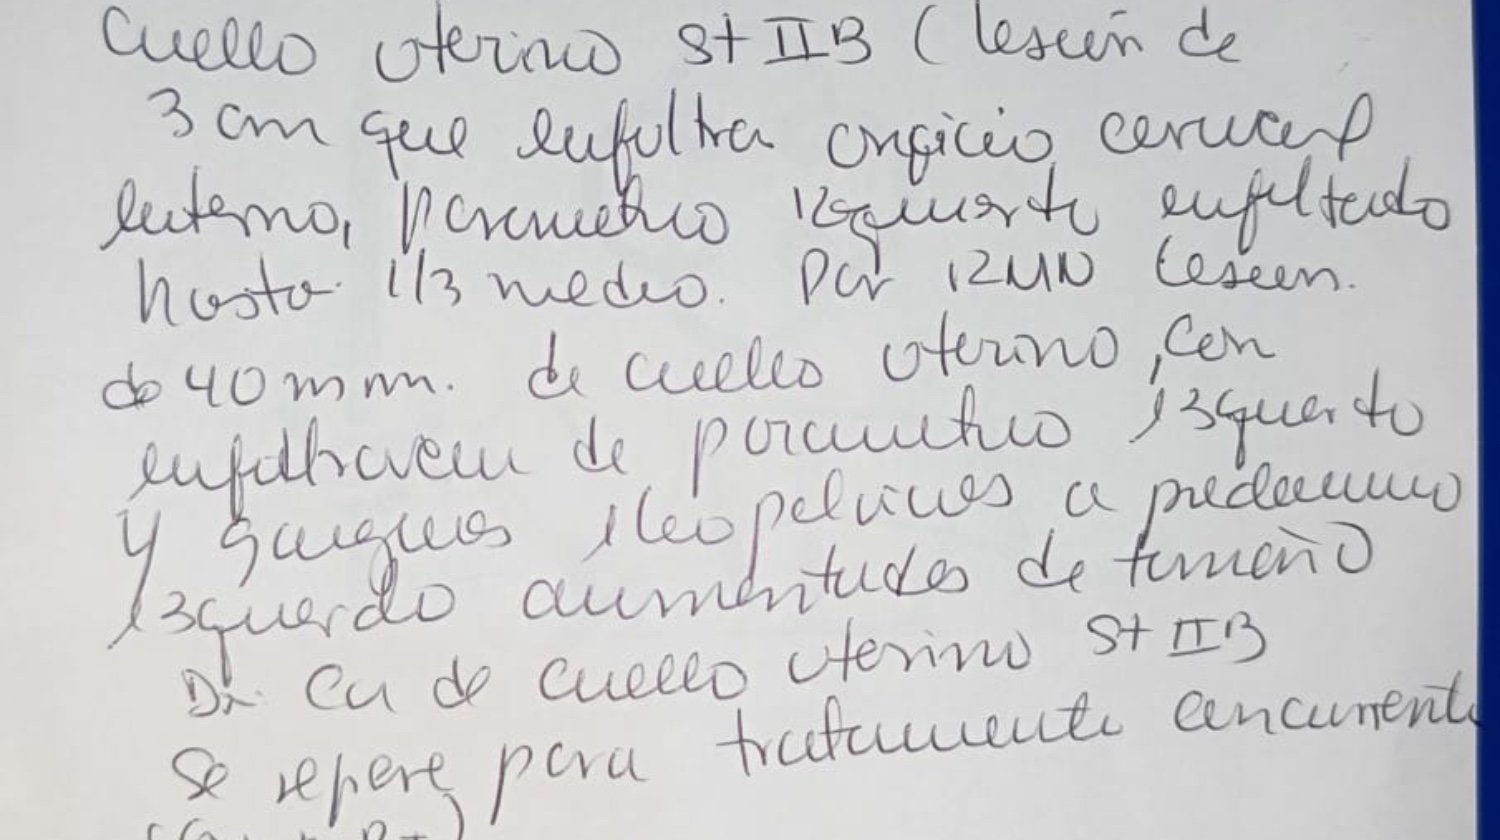 Cuello uterino St IIB (lesión de
3 cm que infiltra orificio cervical
interno, parametrio izquierdo infiltrado
hasta 1/3 medio. Por RMN lesión.
de 40 mm. de cuello uterino, con
infiltración de parametrio izquierdo
y ganglios ileopelvicos a predominio
izquierdo aumentados de tamaño
Dx. Ca de cuello uterino St IIB
Se refiere para tratamiento concurrente